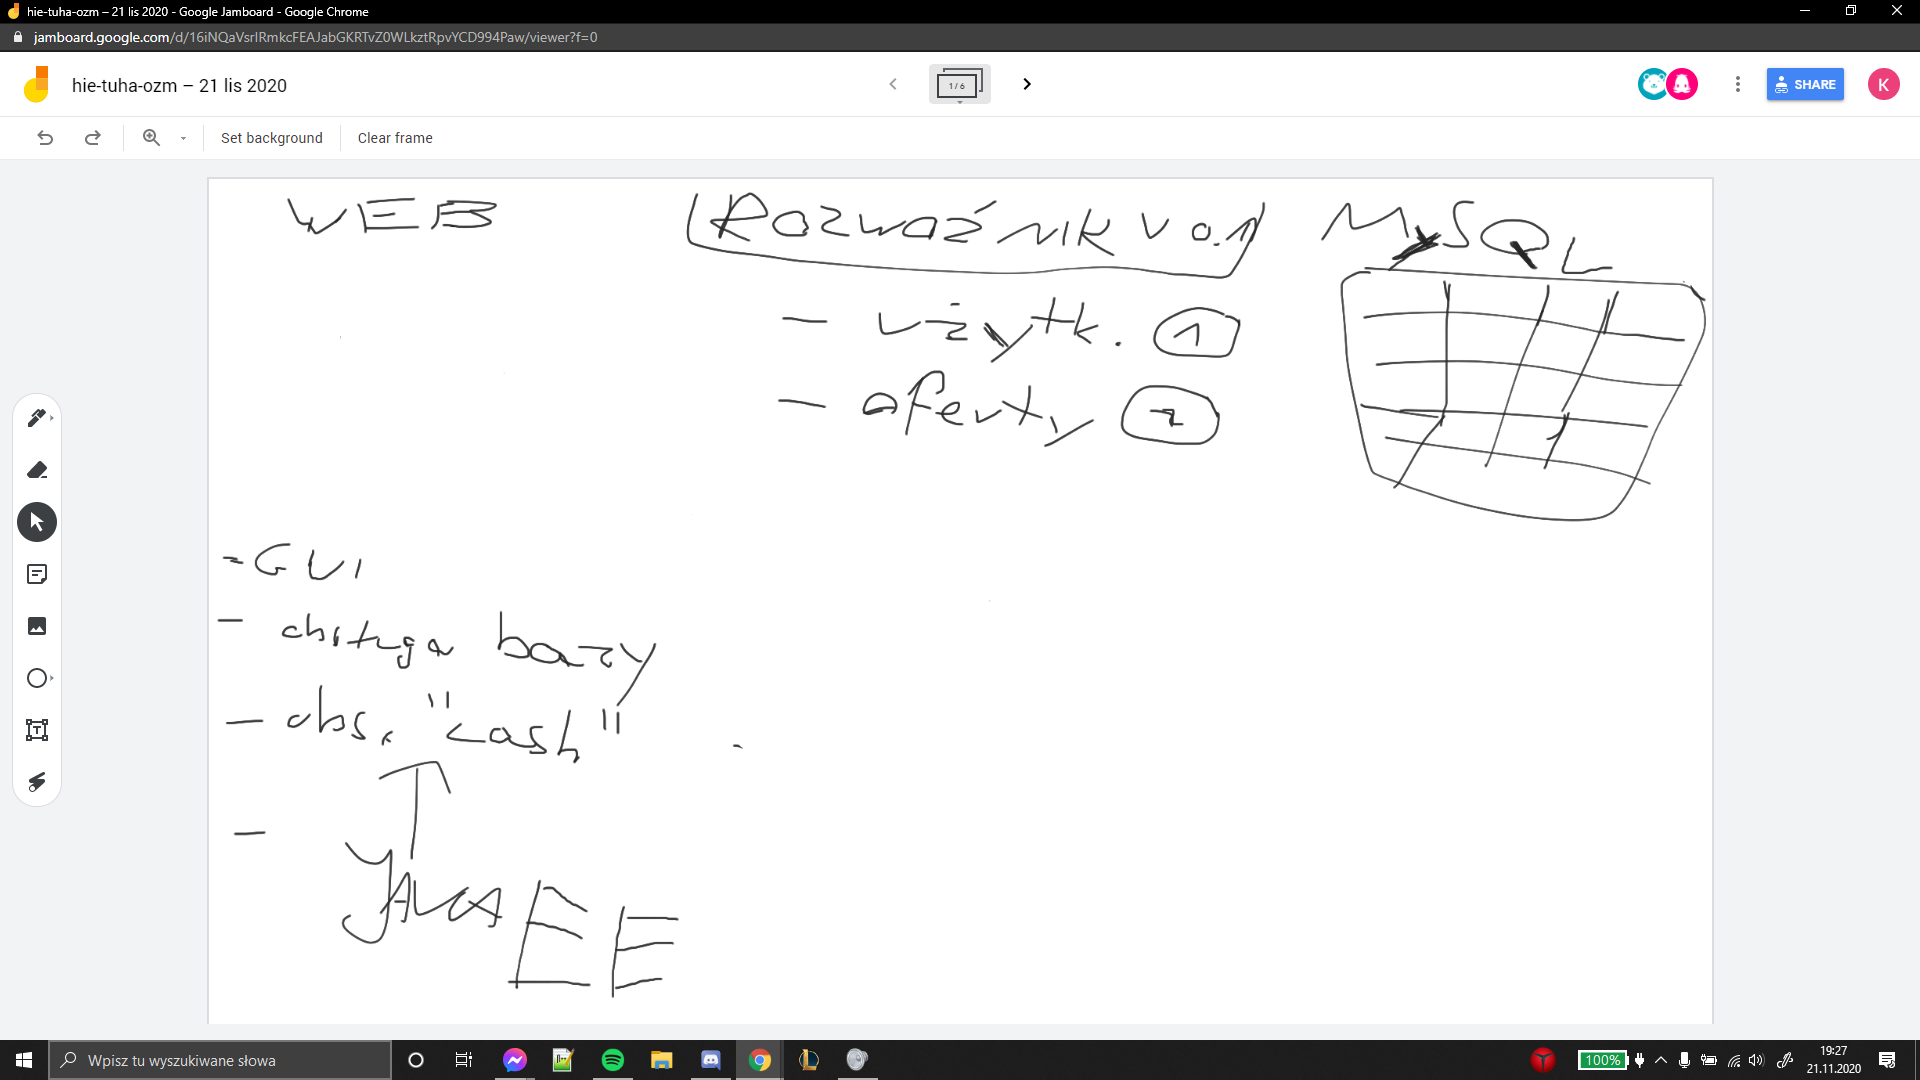 hie-tuha-ozm – 21 lis 2020 - Google Jamboard - Google Chrome
jamboard.google.com/d/16iNQaVsrlRmkcFEAJabGKRTvZ0WLkztRpvYCD994Paw/viewer?f=0
hie-tuha-ozm – 21 lis 2020
1 / 6
SHARE
K
Set background
Clear frame
WEB
ROZWOŹNIK V 0.1
MySQL
- użytk. 1
- oferty 2
- GUI
- obsługa bazy
- obs. "cash"
-
JAVA EE
Wpisz tu wyszukiwane słowa
100%
19:27
21.11.2020